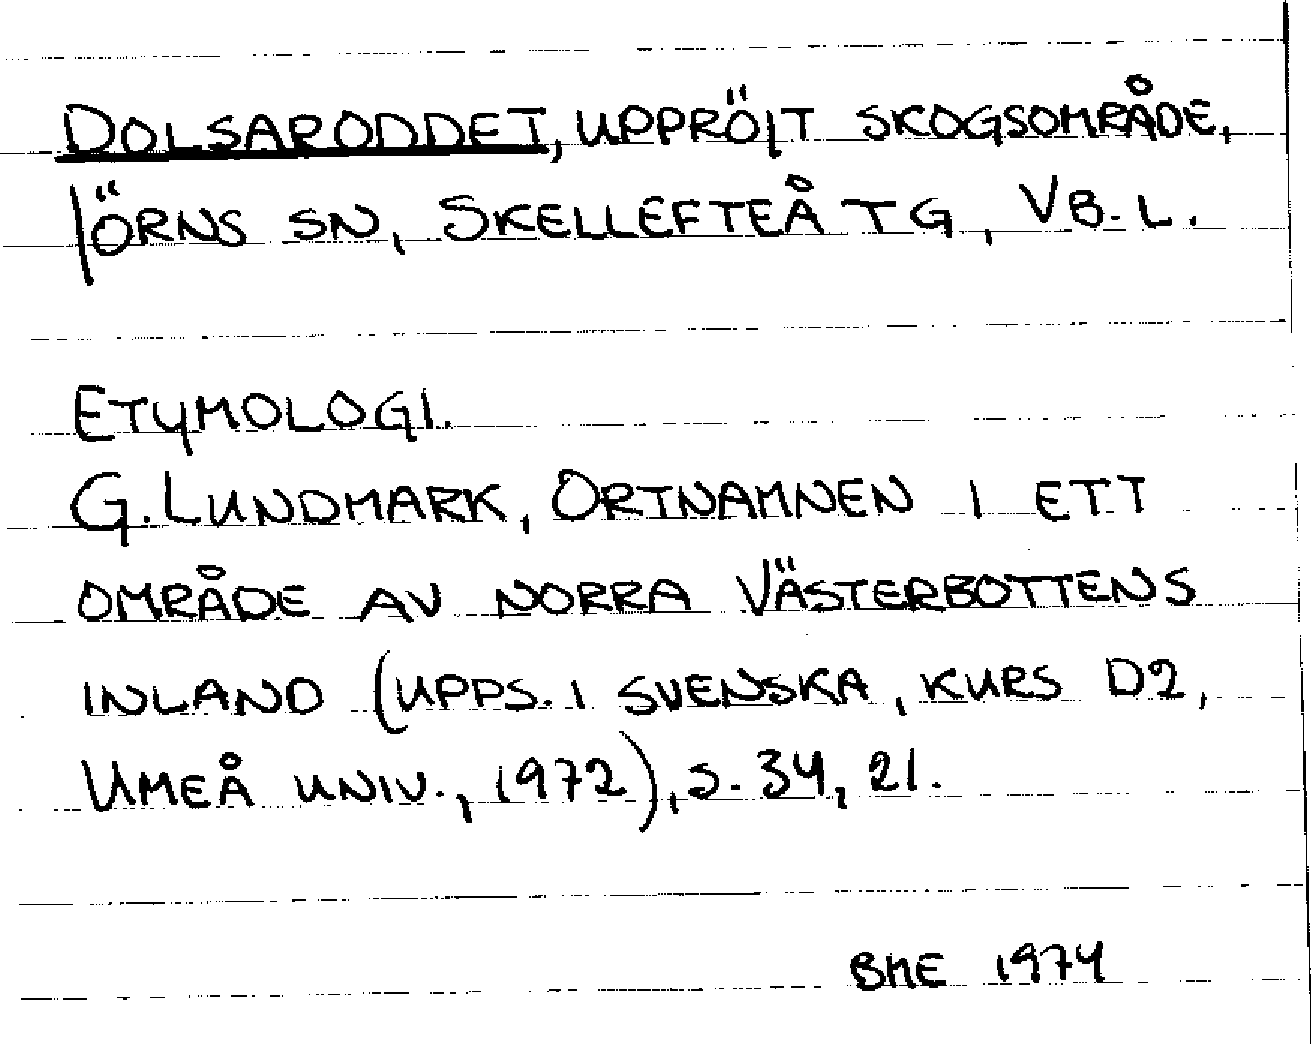 DOLSARODDET, UPPRÖJT SKOGSOMRÅDE,
JÖRNS SN, SKELLEFTEÅ TG, VB. L.
ETYMOLOGI.
G. LUNDMARK, ORTNAMNEN I ETT
OMRÅDE AV NORRA VÄSTERBOTTENS
INLAND (UPPS. I SVENSKA, KURS D2,
UMEÅ UNIV., 1972), S. 34, 21.
BME 1974